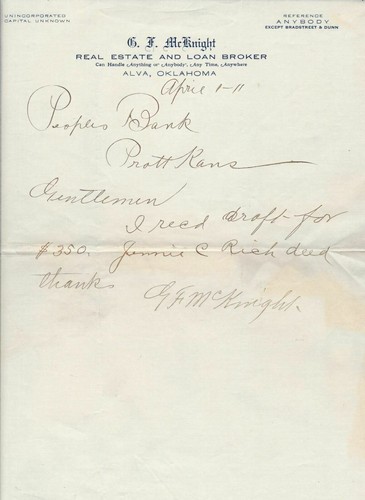 UNINCORPORATED
CAPITAL UNKNOWN
REFERENCE
ANYBODY
EXCEPT BRADSTREET & DUNN
G. F. McKnight
REAL ESTATE AND LOAN BROKER
Can Handle Anything or Anybody, Any Time, Anywhere
ALVA, OKLAHOMA
April 1-11
Peoples Bank
Pratt Kans
Gentlemen
I recd draft for
$350. Jennie C Rich deed
thanks
G F McKnight.